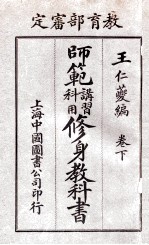 定審部育教
王仁夔編 卷下
師範講習科用修身教科書
上海中國圖書公司印行